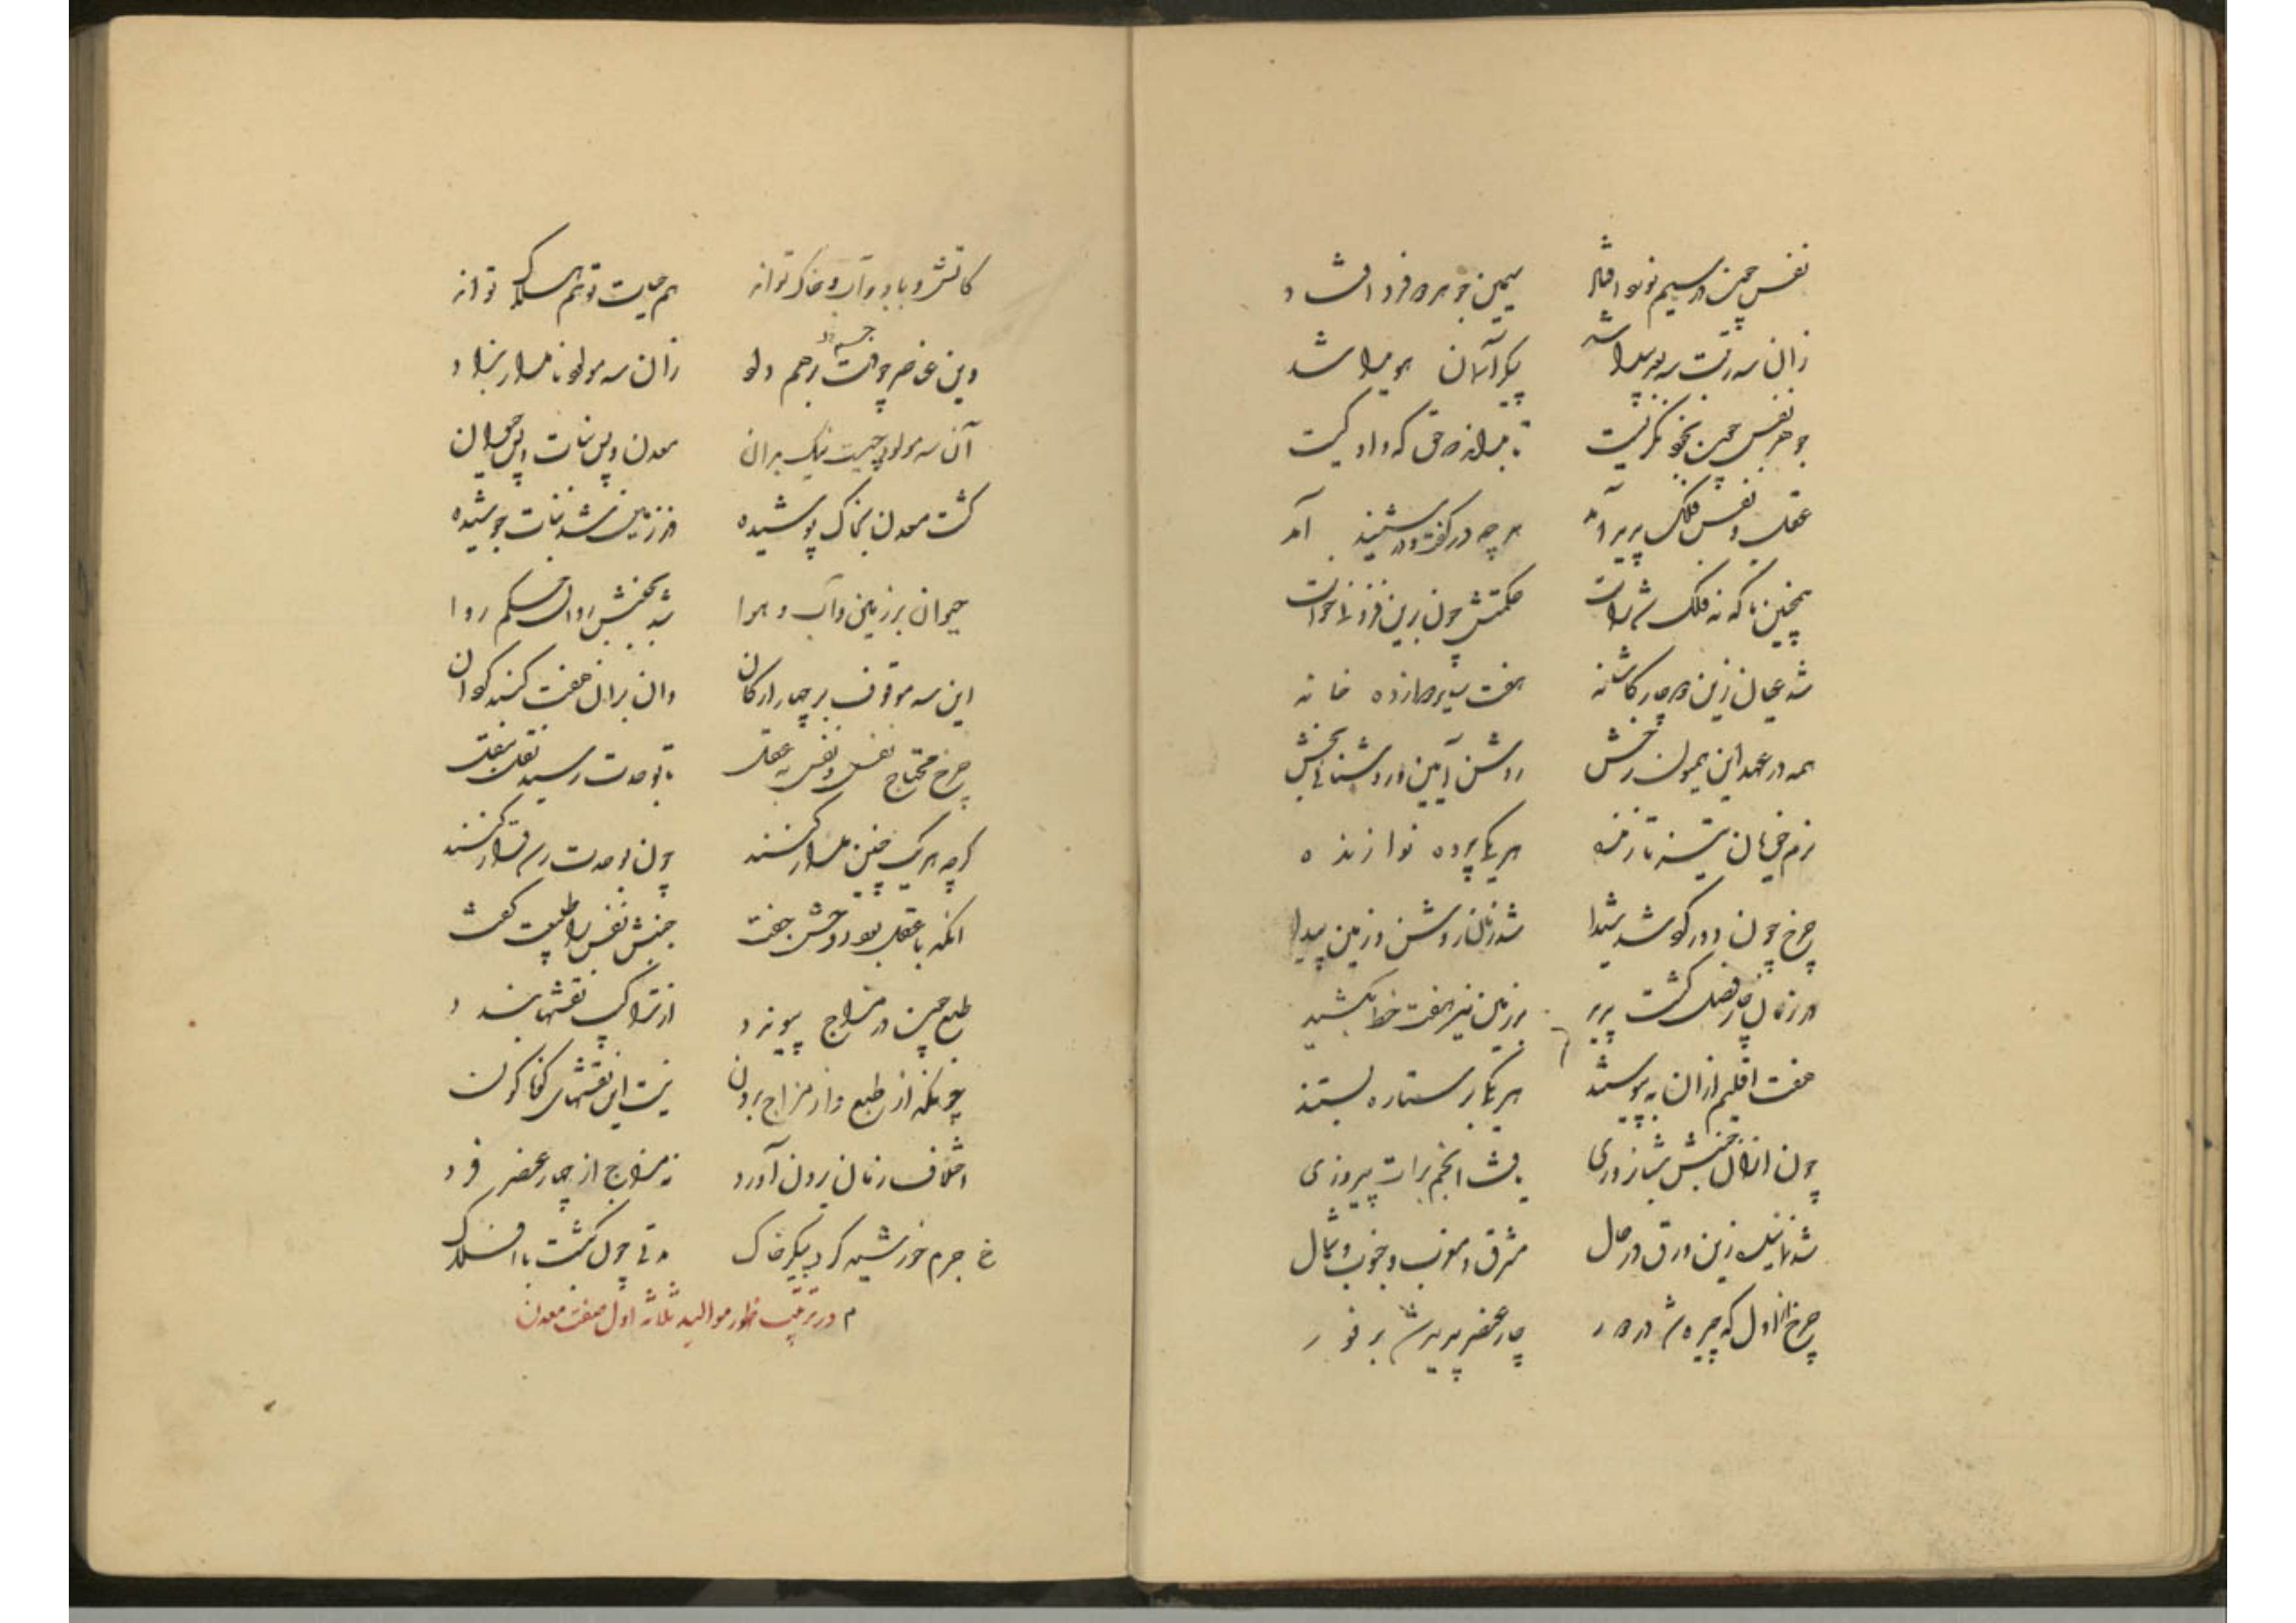 نفس چون در سیم نونو افتاد سیمین جوهره فرو افتاد
زان سه رتبت سه نور پیدا شد پیکر آسمان هویدا شد
جوهر نفس چون بخود نگریست تا بداند ز حق که داد و کیست
عقل و نفس و فلک پدید آمد هر چه در گفت و در شنید آمد
همچنین تا که نه فلک شد راست حکمتش چون برین فزونی خواست
شد عیان زین چار کاشانه هفت سیر و دوازده خانه
همه در عهد این همیون رخش روشن آیین و روشنایی بخش
نرم خیان تیشنه تازنده هر یکی پرده نوازنده
چرخ چون در دور کو شد شیدا شد زمان روشن و زمین پیدا
در زمان چار فصل گشت پدید بر زمین نیز هفت خط بکشید
هفت اقلیم ازان بپیوستند هر یکی بر ستاره بستند
چون ازان جنبش شبانروزی یافت انجم برات پیروزی
شد نمایینده زین ورق در حال مشرق و مغرب و جنوب و شمال
چرخ از اول که چیره شد در دور چار عنصر پدید شد بر فور
کاتش و باد و آب و خاک تواند هم حیات تو هم هلاک تواند
وین عناصر چو جفت شد برهم داد زان سه مولود نامدار بزاد
آن سه مولود چیست نیک بدان معدن و پس نبات و پس حیوان
گشت معدن بخاک پوشیده در زمین شد نبات جوشیده
حیوان بر زمین و آب و هوا شد بجنبش روان و حکم روا
این سه موقوف بر چهار ارکان وان بران هفت گنبد گردان
چرخ محتاج نفس و نفس به عقل تا بوحدت رسید نقل بنقل
گرچه هر یک چنین مدار کنند چون بوحدت رسد قرار کنند
آنکه با عقل بود روحش جفت جنبش نفس را طبیعت گفت
طبع چون در مزاج پیوندد از تراکیب نقشها بندد
چونکه از طبع و از مزاج برون نیست این نقشهای گوناگون
اختلاف زمان برون آورد نه مزاج از چهار عنصر فرد
جرم خورشید گرد پیکر خاک مدتی چون بگشت با افلاک
در ترتیب ظهور موالید ثلاثه اول صفت معدن